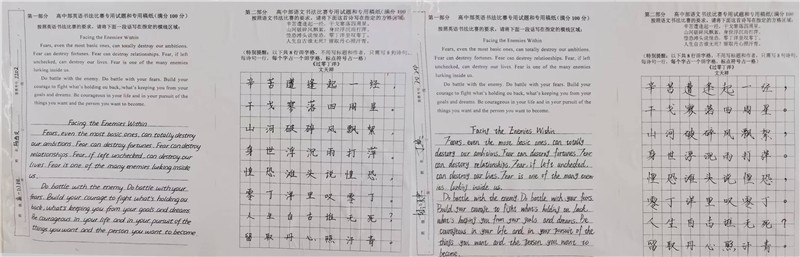 第一部分 高中部英语书法比赛专用试题和专用稿纸(满分100分)
按照英语书法比赛的要求，请将下面一段话写在指定的横线区域。
Facing the Enemies Within
Fears, even the most basic ones, can totally destroy our ambitions.
Fear can destroy fortunes. Fear can destroy relationships. Fear, if left
unchecked, can destroy our lives. Fear is one of the many enemies
lurking inside us.
Do battle with the enemy. Do battle with your fears. Build your
courage to fight what's holding you back, what's keeping you from your
goals and dreams. Be courageous in your life and in your pursuit of the
things you want and the person you want to become.
Facing the Enemies Within
Fears, even the most basic ones, can totally destroy
our ambitions. Fear can destroy fortunes. Fear can destroy
relationships. Fear, if left unchecked, can destroy our
lives. Fear is one of the many enemies lurking inside
us.
Do battle with the enemy. Do battle with your
fears. Build your courage to fight what's holding you
back, what's keeping you from your goals and dreams.
Be courageous in your life and in your pursuit of the
things you want and the person you want to become
第二部分 高中部语文书法比赛专用试题和专用稿纸(满分100
辛苦遭逢起一经，干戈寥落四周星。
山河破碎风飘絮，身世浮沉雨打萍。
惶恐滩头说惶恐，零丁洋里叹零丁。
人生自古谁无死？留取丹心照汗青。
《过零丁洋》
文天祥
辛苦遭逢起一经，
干戈寥落四周星。
山河破碎风飘絮，
身世浮沉雨打萍。
惶恐滩头说惶恐，
零丁洋里叹零丁。
人生自古谁无死？
留取丹心照汗青。
第一部分 高中部英语书法比赛专用试题和专用稿纸(满分100分)
按照英语书法比赛的要求，请将下面一段话写在指定的横线区域。
Facing the Enemies Within
Fears, even the most basic ones, can totally destroy our ambitions.
Fear can destroy fortunes. Fear can destroy relationships. Fear, if left
unchecked, can destroy our lives. Fear is one of the many enemies
lurking inside us.
Do battle with the enemy. Do battle with your fears. Build your
courage to fight what's holding you back, what's keeping you from your
goals and dreams. Be courageous in your life and in your pursuit of the
things you want and the person you want to become.
Facing the Enemies Within
Fears, even the most basic ones, can totally
destroy our ambitions. Fear can destroy fortunes. Fear
can destroy relationships. Fear, if left unchecked,
can destroy our lives. Fear is one of the many enem
ies lurking inside us.
Do battle with the enemy. Do battle with your fears.
Build your courage to fight what's holding you back,
what's keeping you from your goals and dreams. Be
courageous in your life and in your pursuit of the
things you want and the person you want to
become.
第二部分 高中部语文书法比赛专用试题和专用稿纸(满分100
《过零丁洋》
文天祥
辛苦遭逢起一经，
干戈寥落四周星。
山河破碎风飘絮，
身世浮沉雨打萍。
惶恐滩头说惶恐，
零丁洋里叹零丁。
人生自古谁无死？
留取丹心照汗青。